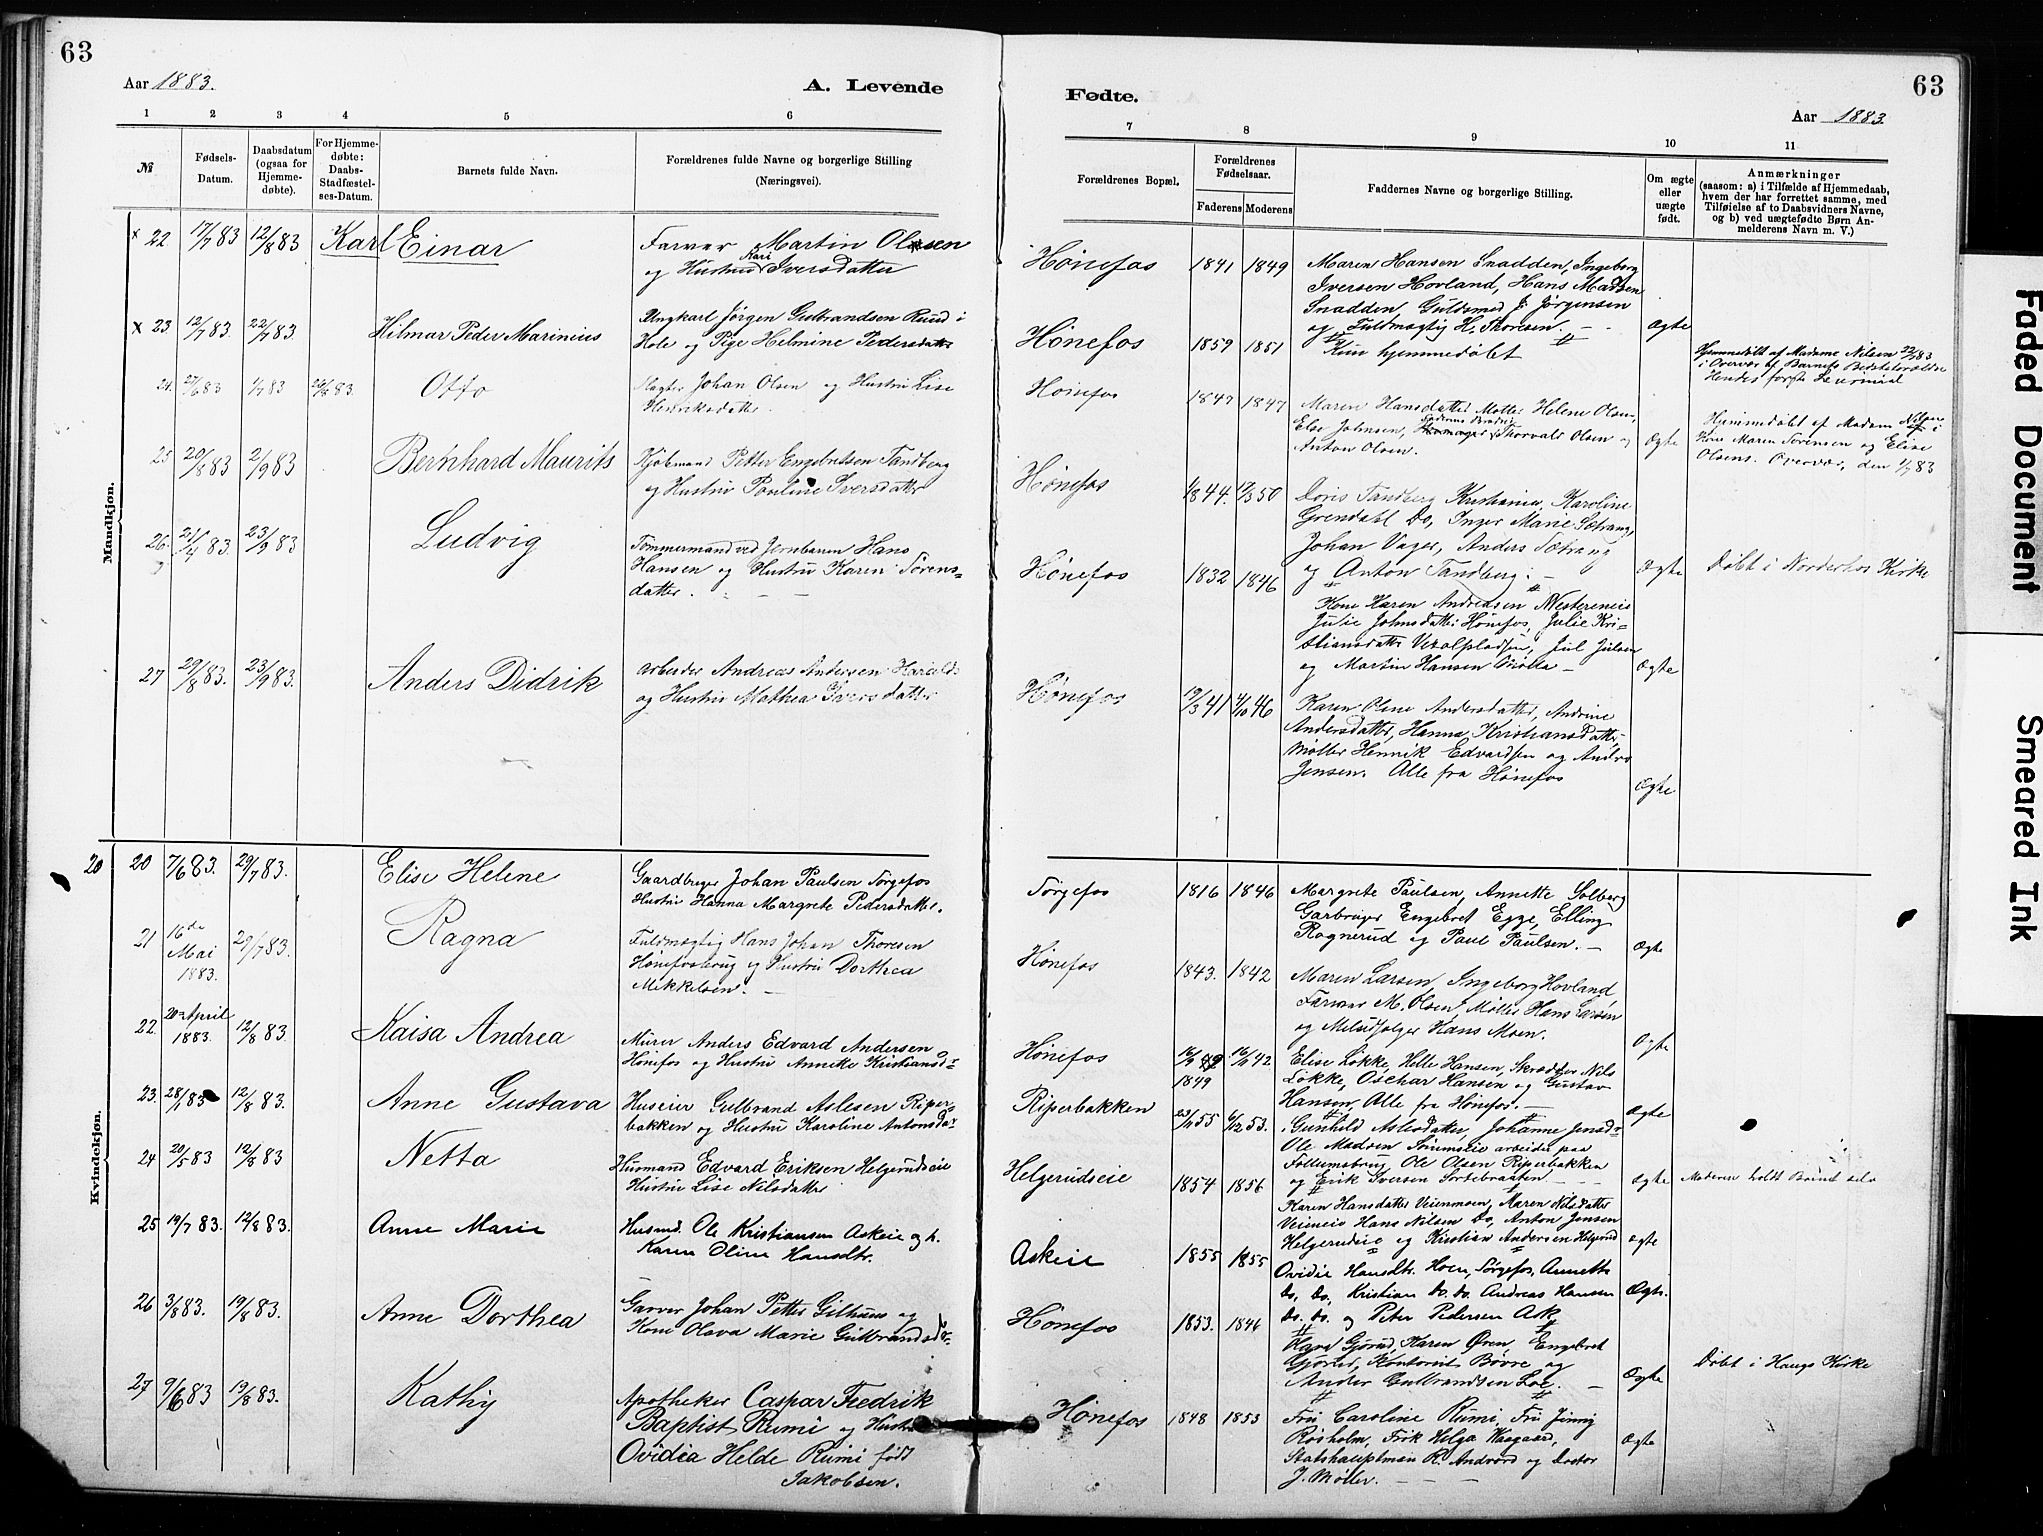 63
Aar 1883.
A. Levende
1 2 3 4 5 6
№
Fødsels-Datum.
Daabsdatum (ogsaa for Hjemmedøbte).
For Hjemmedøbte: Daabs-Stadfæstelses-Datum.
Barnets fulde Navn.
Forældrenes fulde Navne og borgerlige Stilling
(Næringsvei).
Mandkjøn.
x 22 17/7 83 12/8 83 Karl Einar
Farver Martin Olsen
og Hustru Kari Iversdatter
x 23 12/7 83. 22/7 83. Hilmar Peder Marinius
Ungkarl Jørgen Gulbrandsen Ruud i
Hole og Pige Helmine Pedersdatter
24. 27/6 83 1/7 83 26/8 83. Otto
Slagter Johan Olsen og Hustru Lise
Henriksdatter.
25 20/5 83 2/9 83 Bernhard Maurits
Kjøbmand Petter Engebretsen Tandberg
og Hustru Pauline Iversdatter
26. 21/4 83. 23/9 83 Ludvig
Tømmermand ved Jernbanen Hans
Hansen og Hustru Karen Sørens=
datter.
27 29/8 83. 23/9 83. Anders Didrik
Arbeider Andreas Andersen
og Hustru Mathea Iversdatter
Kvindekjøn.
20 20 7/6 83. 29/7 83. Elise Helene
Gaardbruger Johan Paulsen Sørgefos
Hustru Hanna Margrete Pedersdatter.
21 16de Mai 1883. 29/7 83. Ragna
Fuldmægtig Hans Johan Thoresen
Hønefosbrug og Hustru Dorthea
Mikkelsen.
22. 20de April 1883. 12/8 83. Kaisa Andrea
Murer Anders Edvard Andersen
Hønefos og Hustru Annette Kristiansd=
23. 28/1 83 12/8 83. Anne Gustava
Huseier Gulbrand Aslesen Riper
bakken og Hustru Karoline Antonsd=
24 20/5 83 12/8 83 Netta
Husmand Edvard Eriksen Helgerudseie
Hustru Lise Nilsdatter
25 19/7 83. 12/8 83. Anne Marie
Husmd. Ole Kristiansen Askeie og h.
Karen Oline Hansdtr.
26 3/8 83. 19/8 83. Anne Dorthea
Garver Johan Petter Gilhuus og
Kone Olava Marie Gulbrandsd=
27 9/6 83 19/8 83. Kathy
Apotheker Caspar Fredrik
Baptist Rumi og Hustru
Ovidia Helde Rumi født
Jakobsen.
63
Fødte.
Aar 1883.
7 8 9 10 11
Forældrenes Bopæl.
Forældrenes Fødselsaar.
Faderens Moderens
Faddernes Navne og borgerlige Stilling.
Om ægte eller uægte født.
Anmærkninger
(saasom: a) i Tilfælde af Hjemmedaab,
hvem der har forrettet samme, med
Tilføielse af to Daabsvidners Navne,
og b) ved uægtefødte Børn Anmelderens Navn m. V.)
Hønefos 1841 1849
Maren Hansen Snadden, Ingeborg
Iversen Hovland, Hans Madsen
Snadden, Guldsmed J. Jørgensen
og Fuldmægtig H. Thoresen.
Ægte
Hønefos 1859 1851
Kun hjemmedøbt
Hjemmedøbt af Madame Nilsen 22/7 83
i Overvær af Barnets Bedsteforældre
Hendes første
Hønefos 1847 1847
Maren Hansdatter Møller, Helene Olsen,
Else Johnsen, Thorvald Olsen og
Anton Olsen.
Ægte
Hjemmedøbt af Madam Nilsen i
Kone Maren Sørensen og Elise
Olsens Overvær, den 1/7 83
Hønefos 1844. 17/3 50
Doris Tandberg Kristiania, Karoline
Grendahl Do, Inger Marie Sætrang,
Johan Vager, Anders Sætrang
og Anton Tandberg.
Ægte
Hønefos 1832 1846
Døbt i Norderhov Kirke
Kone Karen Andreasen Nestereneie
Julie Johnsdatter Hønefos, Julie Kri=
stiansdatter, Jul Julsen
og Martin Hansen
Ægte
Hønefos 19/3 41 4/10 46
Karen Oline Andersdatter, Andrine
Andersdatter, Hanna Kristiansdatter,
Møller Henrik Edvardsen og Andr.
Jensen. Alle fra Hønefos
Ægte
Sørgefos 1816 1846
Margrete Paulsen, Annette Solberg
Garbruger Engebret Egge, Elling
Rognerud og Paul Paulsen.
Ægte
Hønefos 1843. 1842
Maren Larsen, Ingeborg Hovland
Farver M. Olsen, Møller Hans Larsen
og Meludsælger Hans Moen.
Ægte
Hønefos 1849 16/11 42
Elise Løkke, Helle Hansen, Skrædder Nils
Løkke, Oschar Hansen og Gustav
Hansen, Alle fra Hønefos.
Ægte
Riperbakken 23/11 55 6/12 53.
Gunhild Aslesdatter, Johanne Jensd=
Ole Madsen arbeider paa
Follumsbrug, Ole Olsen Riperbakken
og Erik Iversen Sortebraaten
Ægte
Helgerudseie 1854 1856
Moderen holdt Barnet selv
Karen Hansdatter Veienmoen, Maren Nilsdatter
Veieneie Hans Nilsen Do, Anton Jensen
Helgerudeie og Kristian Andersen Helgerud
Ægte
Askeie 1855 1855
Ovidie Hansdtr. Hoen, Sørgefos, Annette
Do, Do, Kristian do. do. Andreas Hansen
Do. do. og Peter Pedersen Ask
Ægte.
Hønefos 1853. 1846
Gjørud, Karen Øren, Engebret
Gjørud, Kontorist Bøvre og
Ander Gulbrandsen Loe.
Ægte
Døbt i Haugs Kirke
Hønefos 1848 1853
Fru Caroline Rumi, Fru Jinny
Rosholm, Frk Helga Waagaard,
Statshauptman R. Andvord og Doctor
J. Møller.
Ægte
Faded Document
Smeared Ink